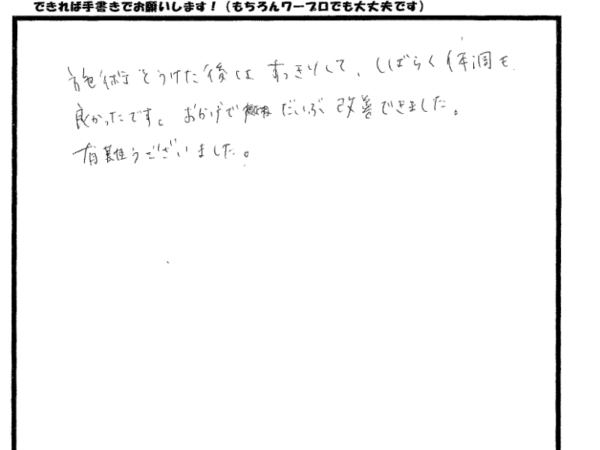 できれば手書きでお願いします！（もちろんワープロでも大丈夫です）
施術をうけた後は すっきりして、しばらく体調も
良かったです。おかげで だいぶ 改善できました。
有難うございました。